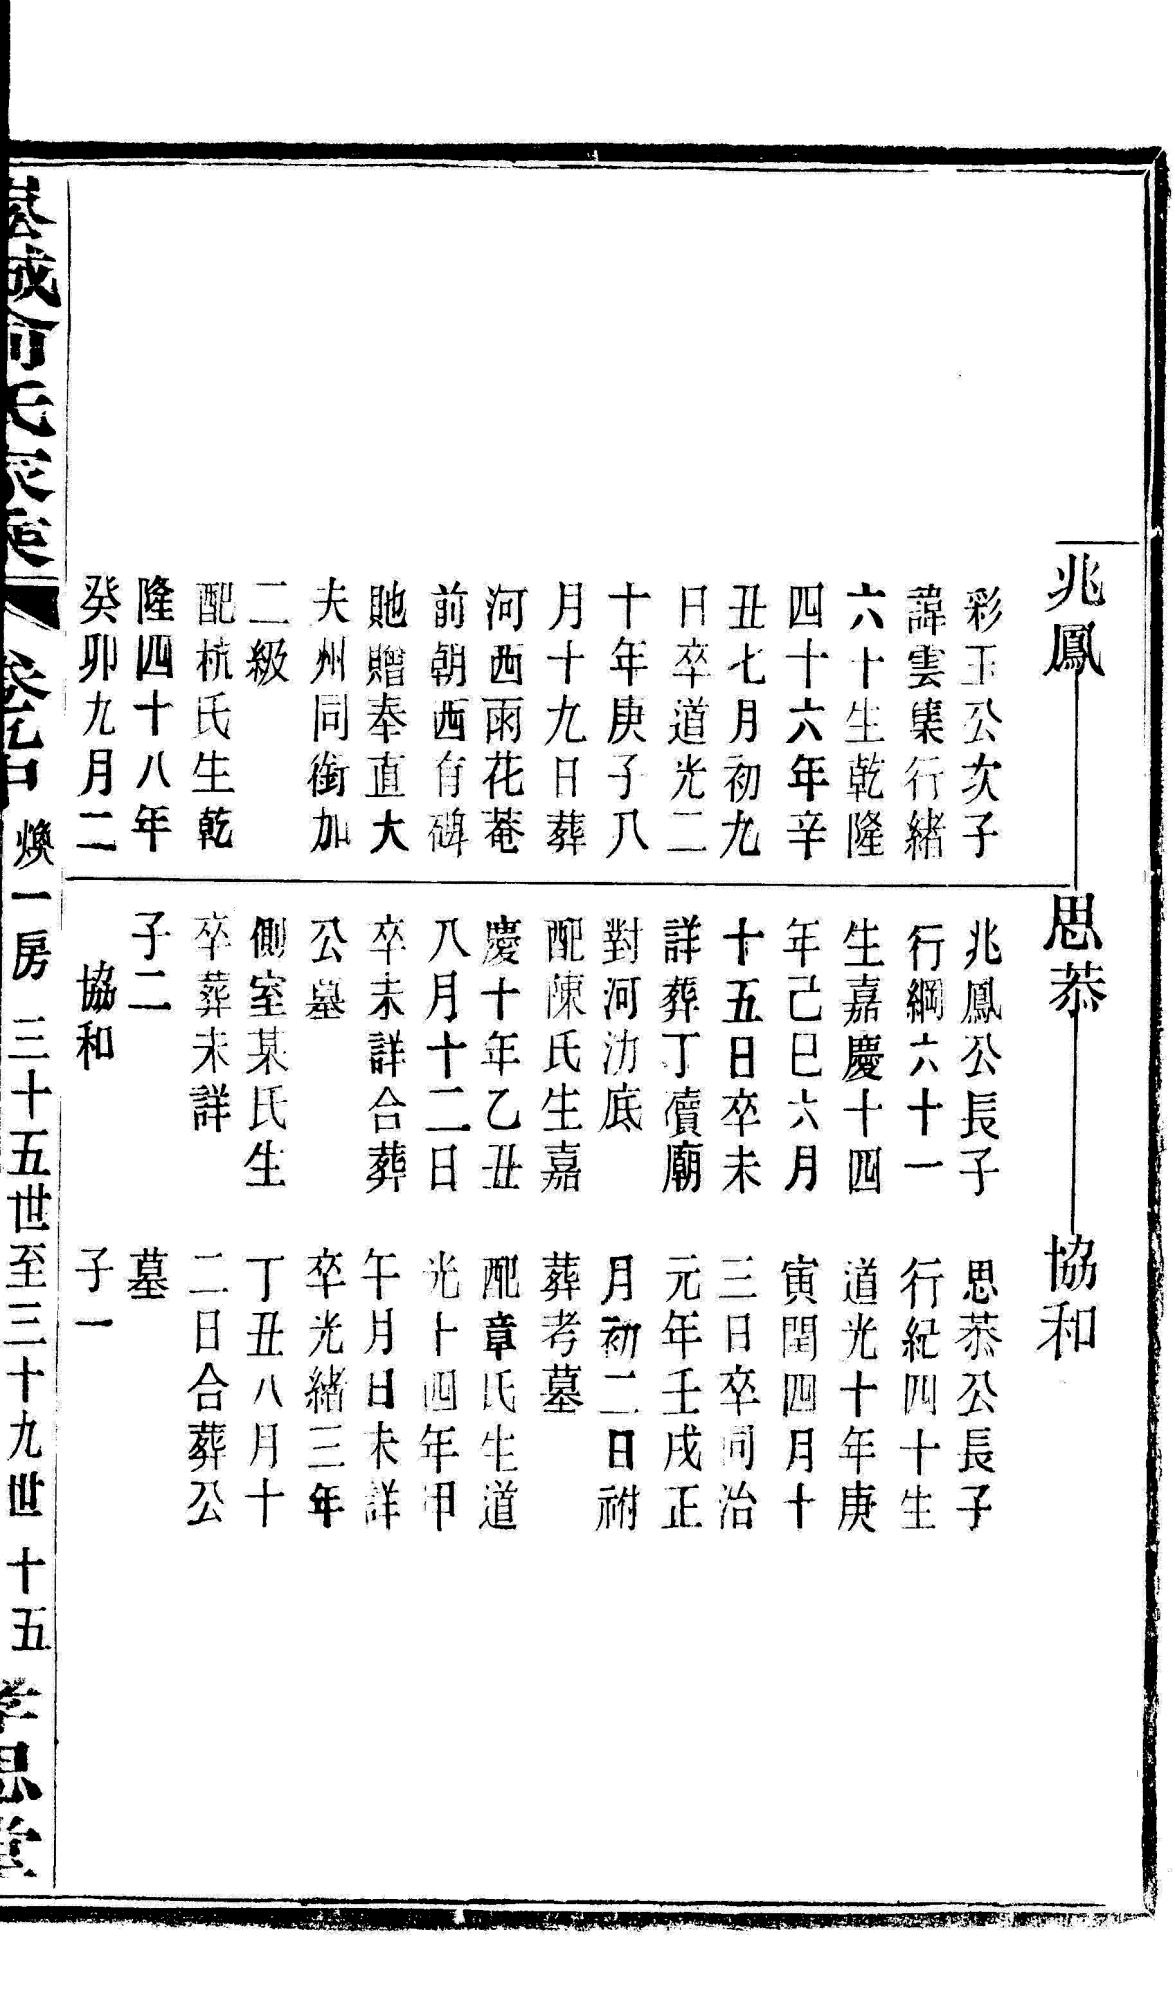 兆鳳
彩玉公次子
諱雲集行緒
六十生乾隆
四十六年辛
丑七月初九
日卒道光二
十年庚子八
月十九日葬
河西雨花菴
前朝西有碑
貤贈奉直大
夫州同銜加
二級
配杭氏生乾
隆四十八年
癸卯九月二
思恭
兆鳳公長子
行綱六十一
生嘉慶十四
年己巳六月
十五日卒未
詳葬丁瀆廟
對河沩底
配陳氏生嘉
慶十年乙丑
八月十二日
卒未詳合葬
公墓
側室某氏生
卒葬未詳
子二
協和
協和
思恭公長子
行紀四十生
道光十年庚
寅閏四月十
三日卒同治
元年壬戌正
月初二日祔
葬考墓
配章氏生道
光十四年甲
午月日未詳
卒光緒三年
丁丑八月十
二日合葬公
墓
子一
俞氏家乘
煥一房 三十五世至三十九世 十五
思堂